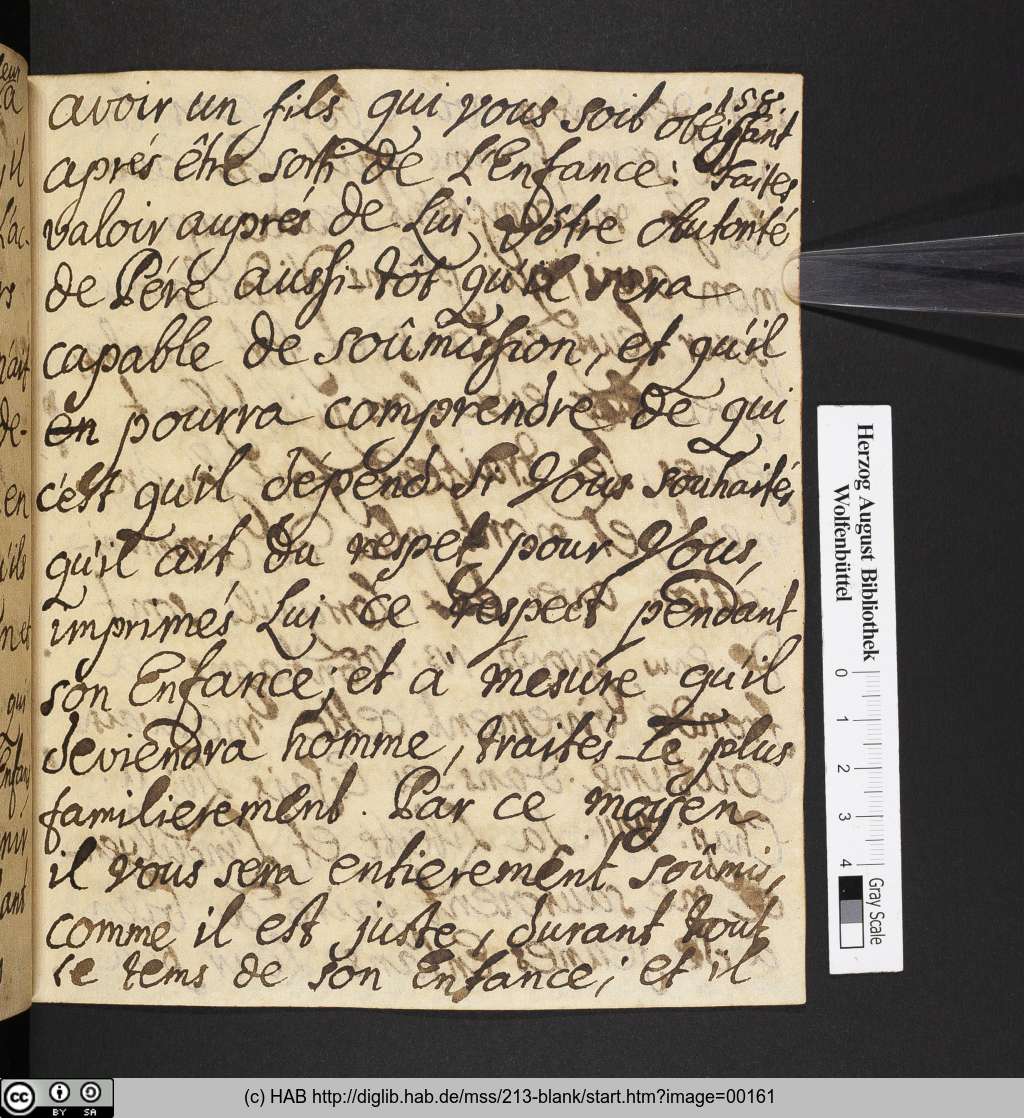 158.
avoir un fils qui vous soit obeissant
aprés être sorti de L'Enfance: Faites
valoir auprés de Lui Vôtre Autorité
de Pére aussi-tôt qu'il sera
capable de soûmission, et qu'il
en pourra comprendre de qui
c'est qu'il dépend. Si Vous souhaités
qu'il ait du respet pour Vous,
imprimés Lui ce respect pendant
son Enfance, et à mesure qu'il
deviendra homme, traités-Le plus
familierement. Par ce moyen
il vous sera entierement soûmis,
comme il est juste, durant tout
le tems de son Enfance; et il
Herzog August Bibliothek
Wolfenbüttel
0 1 2 3 4
Gray Scale
cc BY SA
(c) HAB http://diglib.hab.de/mss/213-blank/start.htm?image=00161